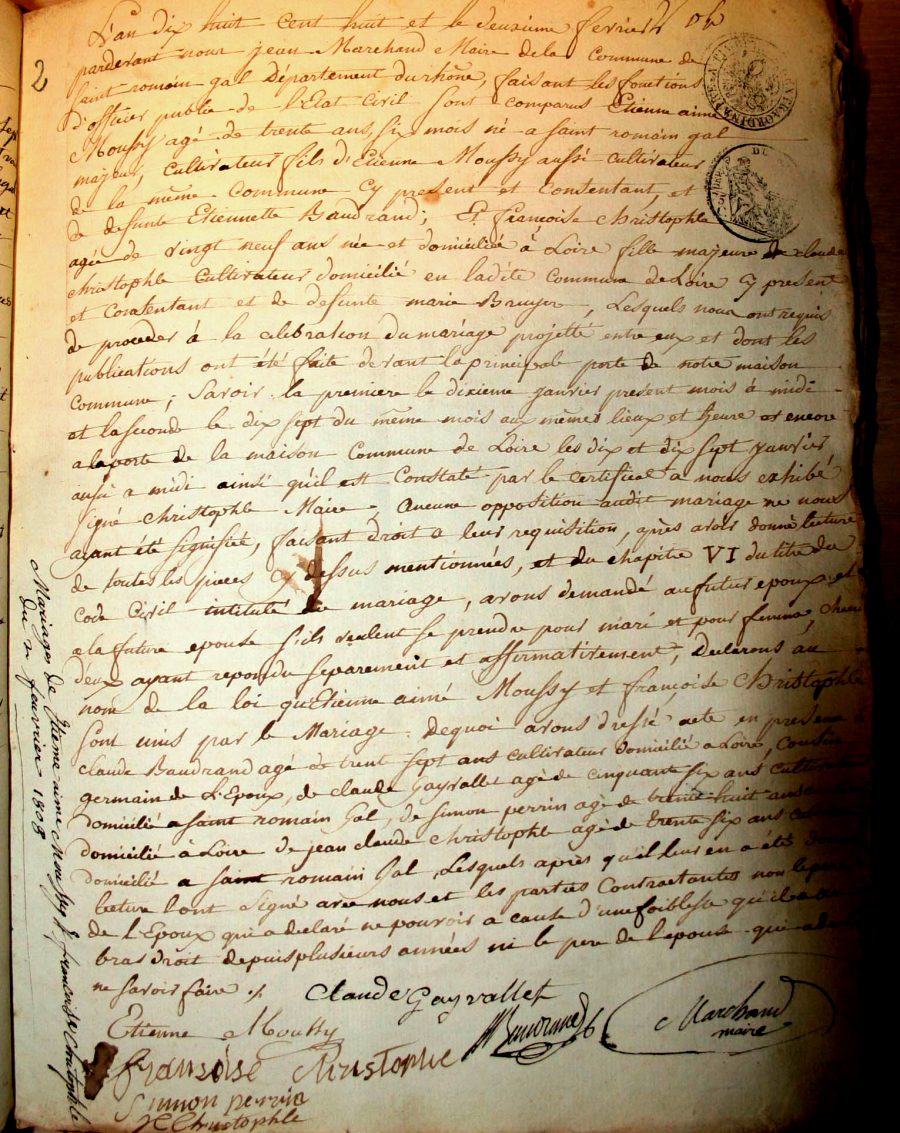 2
L'an dix huit cent huit et le deuxieme fevrier
pardevant nous jean Marchand Maire de la Commune de
saint romain gal Département du rhône, faisant les fonctions
d'officier public de l'Etat Civil sont comparus Etienne aimé
Moussy agé de trente ans, six mois né a saint romain gal
majeur, cultivateur fils d'Etienne Moussy aussi cultivateur
de la même Commune Cy present et Consentant, et
de defunte Etiennette Baudrand; Et françoise Christophle
agée de vingt neuf ans née et domiciliée à Loire fille majeure de claude
Christophle cultivateur domicilié en ladite Commune de Loire Cy present
et Consentant et de defunte marie Bruyer, Lesquels nous ont requis
de proceder à la célébration du mariage projetté entre eux et dont les
publications ont été faite devant la principale porte de notre maison
Commune; Savoir la premiere le dixieme janvier present mois à midi
et la seconde le dix sept du même mois aux mêmes lieux et heure et encore
a la porte de la maison Commune de Loire les dix et dix sept janvier
aussi a midi ainsi qu'il est Constaté par le Certificat a nous exhibé
signé Christophle Maire, aucune opposition audit mariage ne nous
ayant été signifiée, faisant droit a leur requisition, après avoir donné lecture
de toutes les pieces cy dessus mentionnées, et du chapitre VI du titre du
Code Civil intitulé du mariage, avons demandé au futur epoux et
a la future epouse s'ils veulent se prendre pour mari et pour femme,
d'eux ayant repondu separement et affirmativement, declarons au
nom de la loi qu'Etienne aimé Moussy et françoise Christophle
sont unis par le Mariage. Dequoi avons dressé acte en presence
claude Baudrand agé de trent sept ans cultivateur domicilié a Loire, Cousin
germain de L'Epoux, de claude Gayvallet agé de cinquante six ans
domicilié a saint romain Gal, de simon perrin agé de trente huit ans
domicilié à Loire de jean claude Christophle agé de trente six ans
domicilié a saint romain Gal, Lesquels après qu'il leur en a été
lecture l'ont signé avec nous et les parties Contractantes non le pere
de l'Epoux qui a declaré ne pouvoir a cause d'une foiblesse qu'il a au
bras droit depuis plusieurs années ni le pere de l'epouse qui a
ne savoir faire ./.
Claude Gayvallet
Etienne Moussy
Marchand
maire
françoise Christophle
Simon perrin
Christophle
Mariage de Etienne aimé Moussy & françoise Christophle
Du 2 fevrier 1808